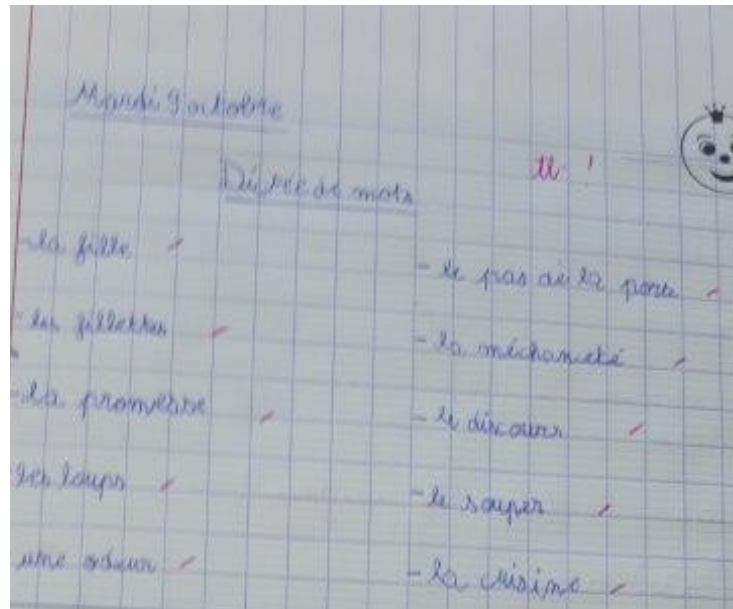 Mardi 9 octobre
Dictée de mots
- la fille
- les fillettes
- la promesse
les loups
une odeur
- le pas de la porte
- la méchanceté
- le discours
- le souper
- la cuisine